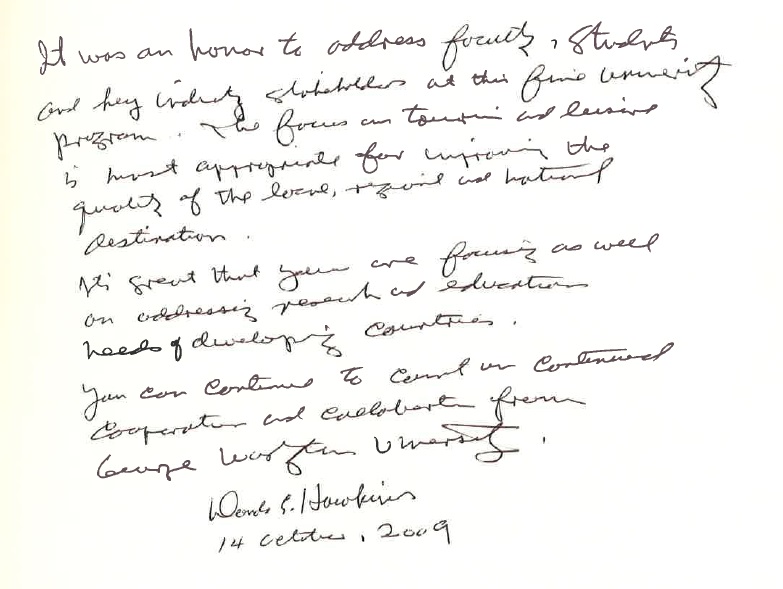 It was an honor to address faculty, students
and key industry stakeholders at this fine university
program. The focus on tourism and leisure
is most appropriate for improving the
quality of the local, regional and national
destination.
It's great that you are focusing as well
on addressing research and education
needs of developing countries.
You can continue to count on continued
cooperation and collaboration from
George Washington University.
Donald E. Hawkins
14 October, 2009